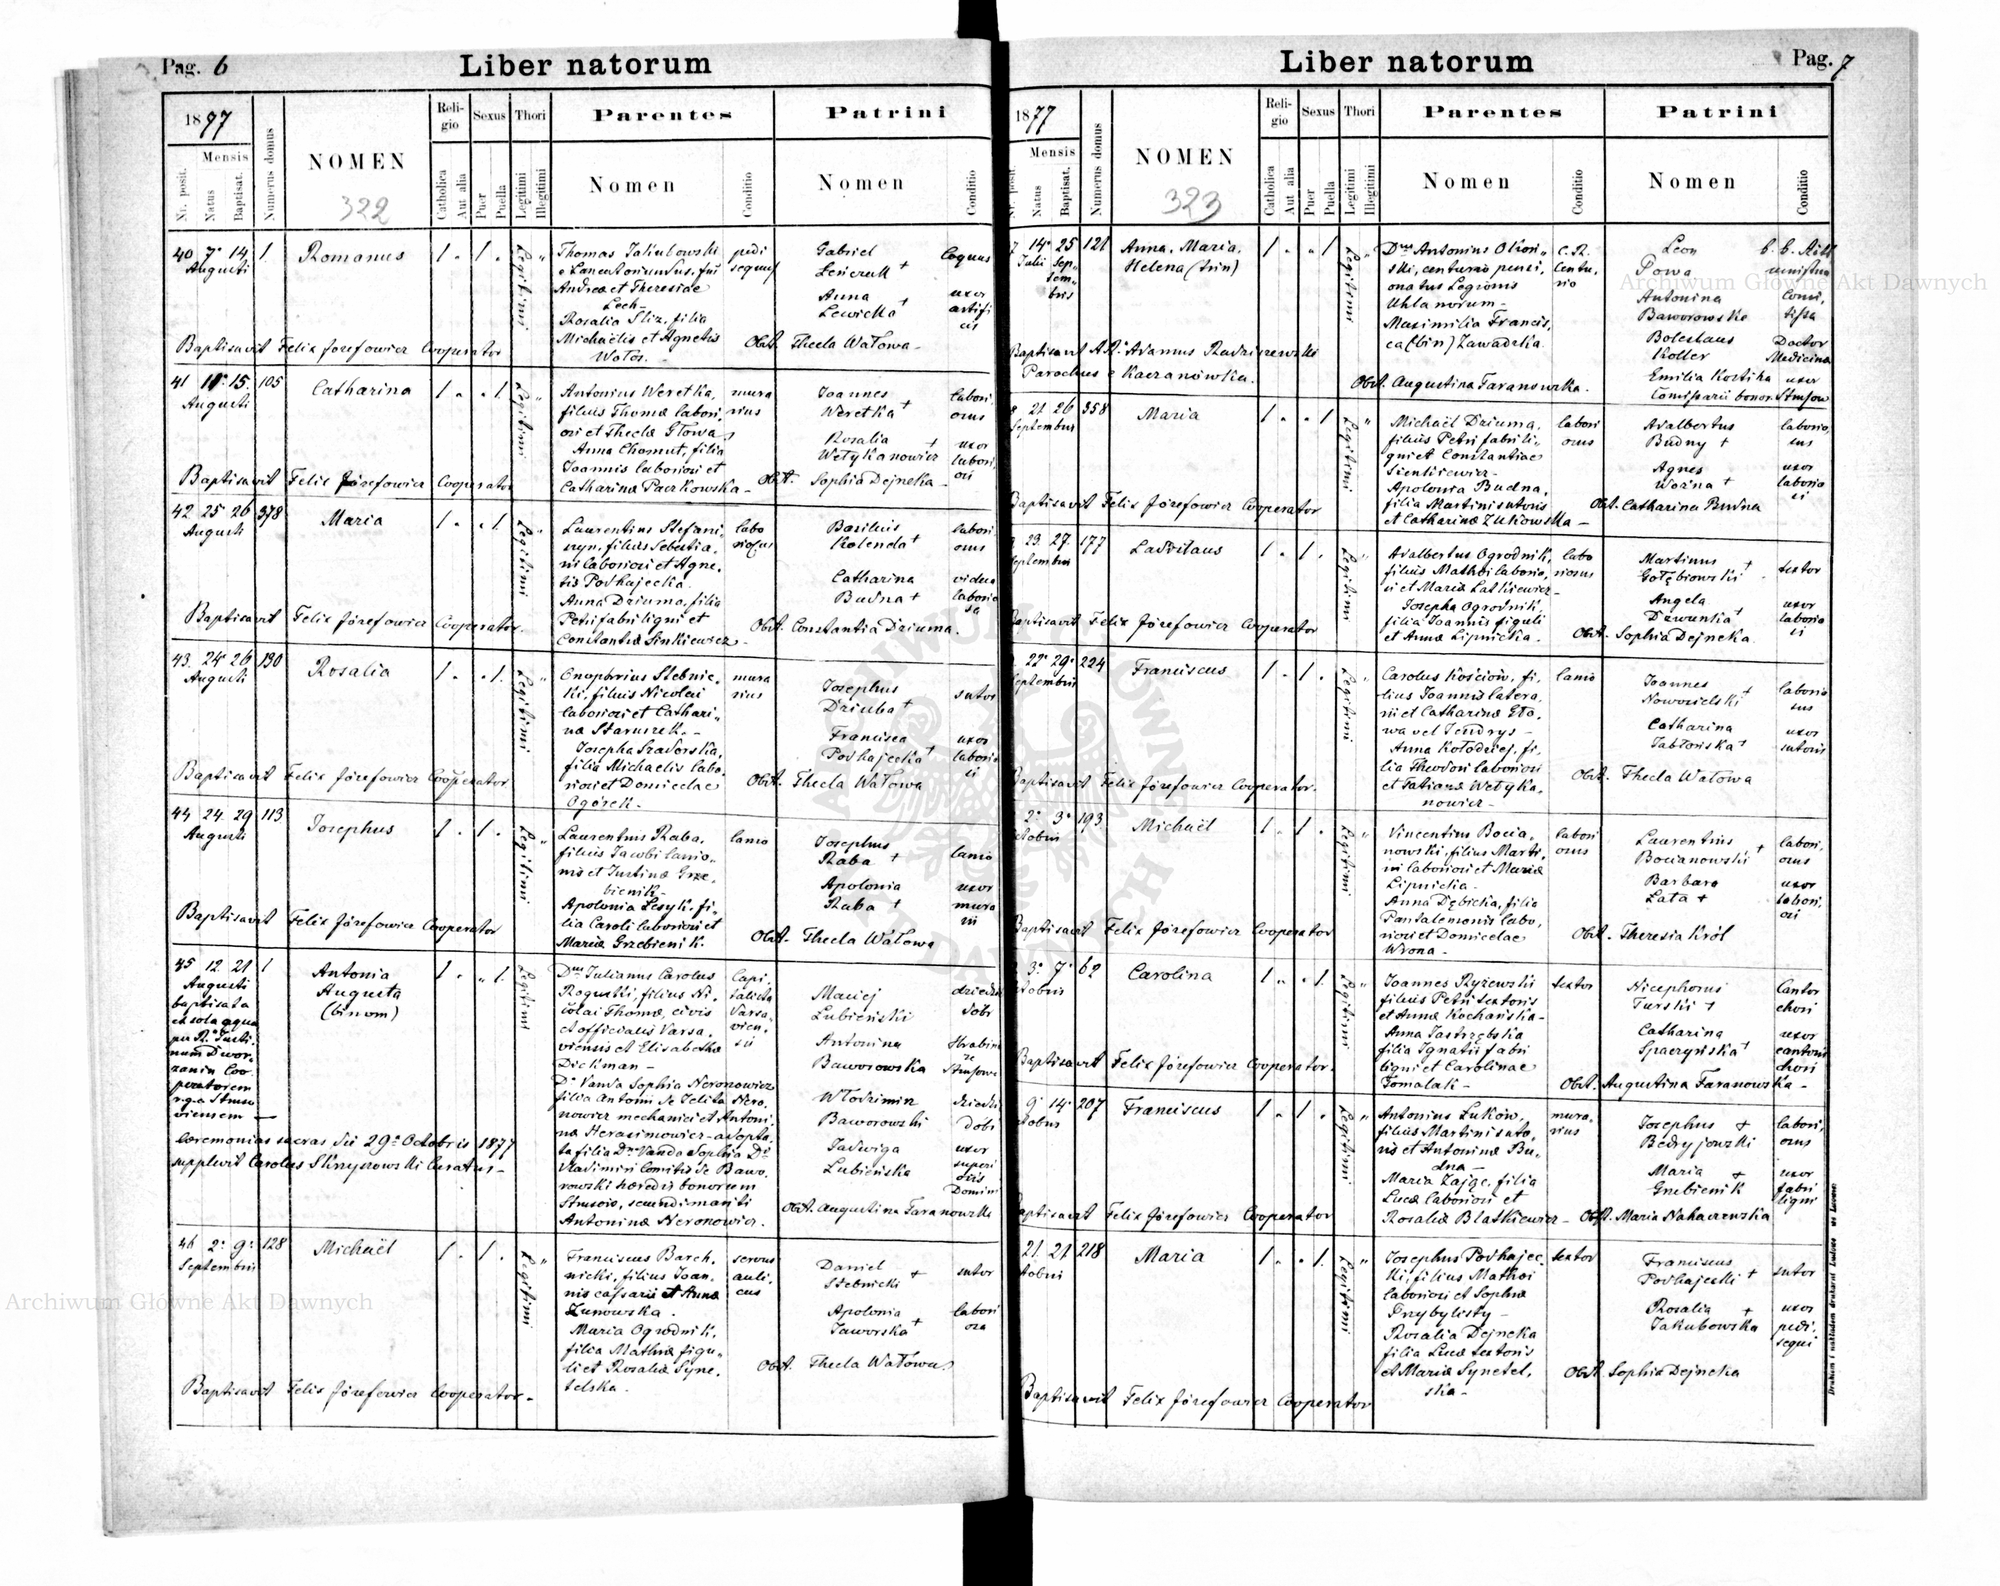 Pag. 6
Liber natorum
1877
Mensis
Nr. posit.
Natus
Baptisat.
Numerus domus
NOMEN
322
Religio
Catholica
Aut alia
Sexus
Puer
Puella
Thori
Legitimi
Illegitimi
Parentes
Nomen
Conditio
Patrini
Nomen
Conditio
40 7 14 1
Augusti
Romanus
Legitimi
Thomas Jakubowski
Andreæ et Theresiæ
Lech
Rosalia Sliz, filia
Michaëlis et Agnetis
Watos
pedi
sequus
Gabriel
Leńczuk +
Coquus
Anna +
Lewicka
uxor
artifi
cis
Baptisavit Felix Józefowicz Cooperator
Obst. Thecla Watowa
41 11 15 105
Augusti
Catharina
Legitimi
Antonius Weretka,
filius Thomæ labori,
osi et Theclæ Głowa,
Anna Chomut, filia
Joannis laboriosi et
Catharinæ Paczkowska
mura
rius
Joannes
Weretka +
labori,
osus
Rosalia +
Wetykanowicz
uxor
labori,
osi
Baptisavit Felix Józefowicz Cooperator
Obst. Sophia Dejneka
42 25 26 378
Augusti
Maria
Legitimi
Laurentius Stefani
szyn, filius Sebastia,
ni laboriosi et Agne,
tis Podhajecka
Anna Dziuma, filia
Petri fabri ligni et
Constantiæ Sinkiewicz
labo
riosus
Basilius
Kolenda +
labori
osus
Catharina
Budna +
vidua
laborio
sa
Baptisavit Felix Józefowicz Cooperator
Obst. Constantia Dziuma.
43 24 26 130
Augusti
Rosalia
Legitimi
Onophrius Stebnic
ki, filius Nicolai
laboriosi et Cathari
næ Staruszek
Josepha Szadorska,
filia Michaelis labo
riosi et Domicelæ
Ogórek
mura
rius
Josephus
Dziuba +
sutor
Francisca
Podhajecka +
uxor
laborio
si
Baptisavit Felix Józefowicz Cooperator
Obst. Thecla Watowa
44 24 29 113
Augusti
Josephus
Legitimi
Laurentius Raba,
filius Jacobi lanio,
nis et Justinæ Grze,
bienik
Apolonia Lesyk, fi,
lia Caroli laboriosi et
Mariæ Grzebienik
lanio
Josephus
Raba +
lanio
Apolonia
Raba +
uxor
mura
rii
Baptisavit Felix Józefowicz Cooperator
Obst. Thecla Watowa
45 12 21 1
Augusti
baptisata
ex sola aqua
Antonia
Augusta
(binom)
Legitimi
Dnus Julianus Carolus
Roguski, filius Ni
colai Thomæ, civis
et officialis Varsa,
viensis et Elisabethæ
Dickman
Da Vanda Sophia Neronowicz
filia Antonii de Jelita Nero,
nowicz mechanici et Antoni,
næ Herasimowicz adopta,
Vladimiri Comitis de Bawo,
rowski hæredis bonorum
Strusów, secundi mariti
Antoninæ Neronowicz.
Capi,
talista
Varsa,
vien,
sis
Maciej
Lubieński
Antonina
Baworowska
Włodzimirz
Baworowski
Jadwiga
Lubieńska
uxor
superi
oris
Domini
Cæremonias sacras die 29 Octobris 1877
supplevit Carolus Skrzyszowski Curatus
Obst. Augustina Taranowska
46 2 9 128
Septembris
Michaël
Legitimi
Franciscus Barch,
nicki, filius Joan,
nis et Annæ
Zunowska.
Maria Ogrodnik,
filia Mathiæ figu,
li et Rosaliæ Syne,
telska.
servus
auli,
cus
Daniel
Stebnicki +
sutor
Apolonia
Jaworska +
labori
osa
Baptisavit Felix Józefowicz Cooperator
Obst. Thecla Watowa
Pag. 7
Liber natorum
1877
Mensis
Nr. posit.
Natus
Baptisat.
Numerus domus
NOMEN
323
Religio
Catholica
Aut alia
Sexus
Puer
Puella
Thori
Legitimi
Illegitimi
Parentes
Nomen
Conditio
Patrini
Nomen
Conditio
14 25 121
Julii Sep,
tem,
bris
Anna, Maria,
Helena (trin)
Legitimi
Dnus Antonius
ski, centurio pensi,
onatus Legionis
Uhlanorum
Maximilia Francis,
ca (bin) Zawadzka
C. R.
Centu,
rio
Leon
Antonina
Baworowska
Comi,
tissa
Boleslaus
Koller
Doctor
Medicinæ
Emilia
uxor
Baptisavit Adamus
Parochus e Kaczanówka.
Obst. Augustina Taranowska.
21 26 358
Septembris
Maria
Legitimi
Michaël Dziuma,
filius Petri fabri li,
gni et Constantiæ
Sienkiewicz
Apolonia Budna,
filia Martini sutoris
et Catharinæ Zukowska
labori
osus
Adalbertus
Budny +
laborio,
sus
Agnes
Woźna +
uxor
laborio
si
Baptisavit Felix Józefowicz Cooperator
Obst. Catharina Budna
23 27 177
Septembris
Ladislaus
Legitimi
Adalbertus Ogrodnik,
filius Mathæi laborio,
si et Mariæ Latkiewicz
Josepha Ogrodnik,
filia Joannis figuli
et Annæ Lipnicka.
labo
riosus
Martinus +
Gołębiowski
textor
Angela +
Dzwonka
uxor
laborio
si
Baptisavit Felix Józefowicz Cooperator
Obst. Sophia Dejneka
22 29 224
Septembris
Franciscus
Legitimi
Carolus Kościów, fi,
lius Joannis latera,
rii et Catharinæ Gło,
wa vel Jendrys
Anna Kołodziej, fi,
lia Theodori laboriosi
et Tatianæ Wetyka,
nowicz
lanio
Joannes +
Nowosielski
laborio
sus
Catharina
Jabłońska +
uxor
sutoris
Baptisavit Felix Józefowicz Cooperator.
Obst. Thecla Watowa
2 3 193
Octobris
Michaël
Legitimi
Vincentius Bocia,
nowski, filius Marti,
ni laboriosi et Mariæ
Lipnicka
Anna Dębicka, filia
Pantalemonis labo,
riosi et Domicelæ
Wrona
labori
osus
Laurentius +
Bocianowski
labori,
osus
Barbara
Lata +
uxor
labori,
osi
Baptisavit Felix Józefowicz Cooperator
Obst. Theresia Król
3 7 62
Octobris
Carolina
Legitimi
Joannes Ryżewski
filius Petri textoris
et Annæ Kochańska
Anna Jastrzębska
filia Ignatii fabri
ligni et Carolinæ
Tomalak
textor
Nicephorus
Turski +
Cantor
chori
Catharina
Spaczyńska +
uxor
cantoris
chori
Baptisavit Felix Józefowicz Cooperator.
Obst. Augustina Taranowska
9 14 207
Octobris
Franciscus
Legitimi
Antonius Luków,
filius Martini suto,
ris et Antoninæ Bu,
dna
Maria Zając, filia
Lucæ laboriosi et
Rosaliæ Blatkiewicz
mura,
rius
Josephus +
labori,
osus
Maria +
Grzebienik
uxor
fabri
ligni
Baptisavit Felix Józefowicz Cooperator
Obst. Maria Nakaczewska
21 21 218
Octobris
Maria
Legitimi
Josephus Podhajec,
ki, filius Mathæi
laboriosi et Sophiæ
Przybylisty
Rosalia Dejneka
filia Lucæ textoris
et Mariæ Synetel,
ska
textor
Franciscus
Podhajecki +
sutor
Rosalia +
Jakubowska
uxor
pedi,
sequi
Baptisavit Felix Józefowicz Cooperator
Obst. Sophia Dejneka
Archiwum Główne Akt Dawnych
Archiwum Główne Akt Dawnych
ARCHIWUM GŁÓWNE AKT DAWNYCH